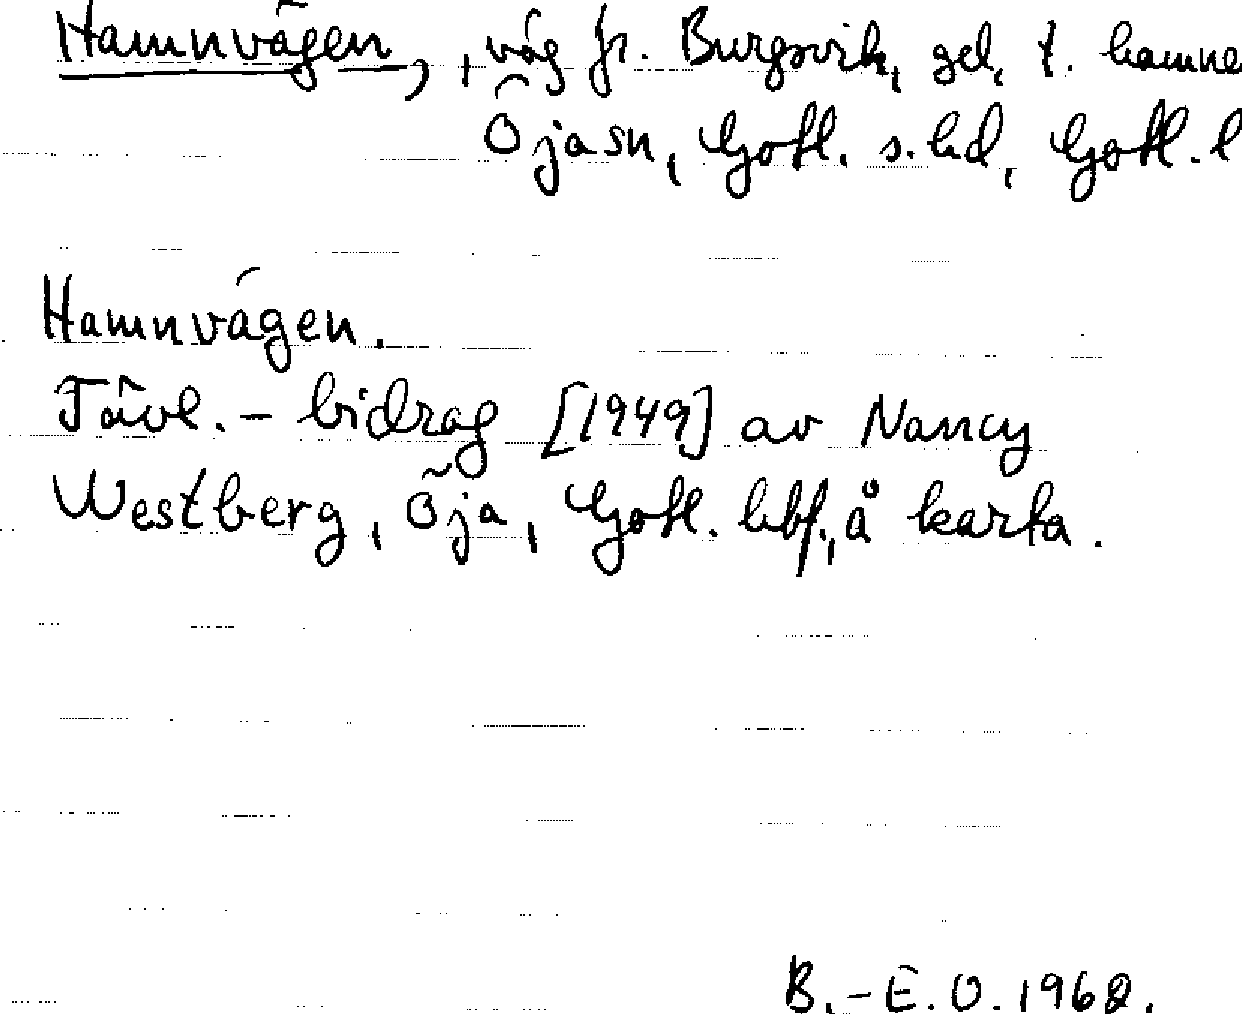 Hamnvägen, , väg fr. Burgsvik, gd, t. hamne
Öja sn, Gotl. s. hd, Gotl. l
Hamnvägen.
Tävl. - bidrag [1949] av Nancy
Westberg, Öja, Gotl. hbf., å karta.
B.-E. O. 1962.